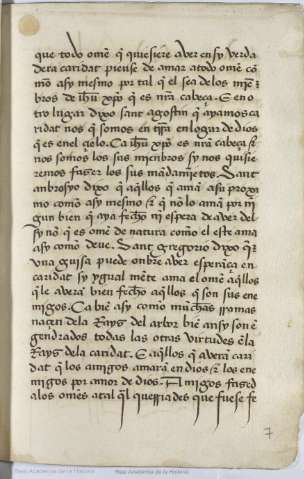 que todo ome q̃ quiesiere aver en sy verda
dera caridat piense de amar a todo ome co
mo asy mesmo por tal q̃ el sea de los mẽ
bros de ihũ xpo q̃ es nr̃a cabeça. E en o
tro lugar dixo sant agostin q̃ ayamos ca
ridat nos q̃ somos en tr̃ra en logar de dios
q̃ es en el çielo. Ca ihũ xpo es nr̃a cabeça &
nos somos los sus mienbros sy nos quisie
remos fazer los sus mandamiẽtos. Sant
anbrosyo dixo q̃ aq̃llos q̃ aman a su proxi
mo como asy mesmo & q̃ no lo ama por ni
gun bien q̃ aya fecho ni espera de aver del
sy no q̃ es ome de natura como el este ama
asy como deue. Sant gregorio dixo q̃
vna guisa puede onbre aver esperãça en
caridat sy ygual mẽte ama el ome aq̃llos
q̃ le avera bien fecho aq̃llos q̃ son sus ene
migos. Ca biẽ asy como muchas rramas
naçen dela Rayz del arbor biẽ ansy son ẽ
gendrados todas las otras virtudes ẽla
Rayz dela caridat. E aq̃llos q̃ averã cari
dat q̃ los amigos amarã en dios & los ene
migos por amor de dios. Amigos fazed
alos omẽs atal q̃l querriades que fuese fe
7
Real Academia de la Historia